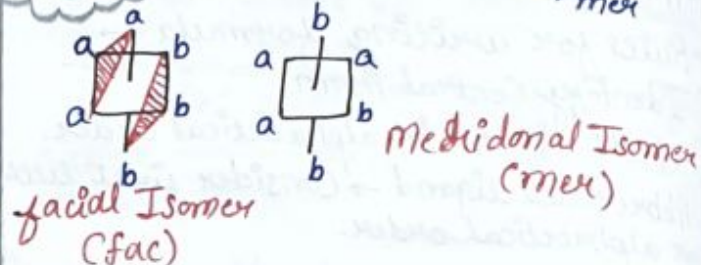 mer
a
b
a
b
a
b
a
a
b
a
b
b
b
Medridonal Isomer
(mer)
facial Isomer
(fac)